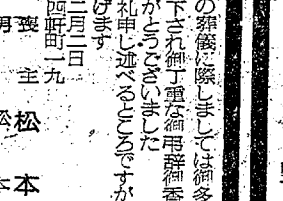 の葬儀に際しましては御多
下され御丁重な御弔辞御香
がとうございました
礼申し述べるところですが
げます
二月二日
西軒町一九
喪主 松本